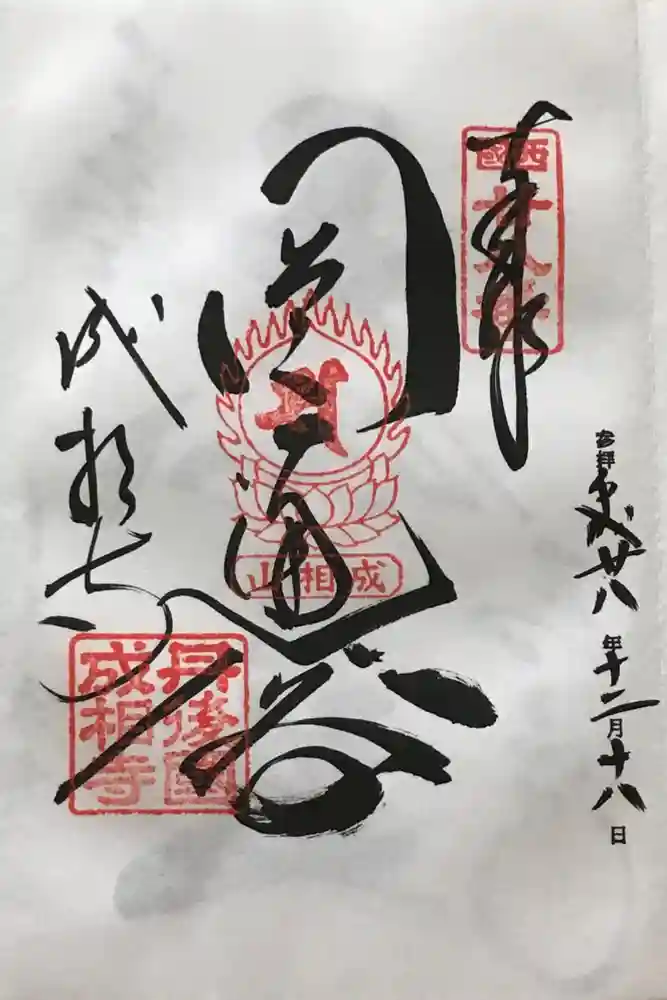 奉拝
西國
廿八番
参拝平成廿八年十二月十八日
圓通閣
成相山
成相寺
丹後國
成相寺